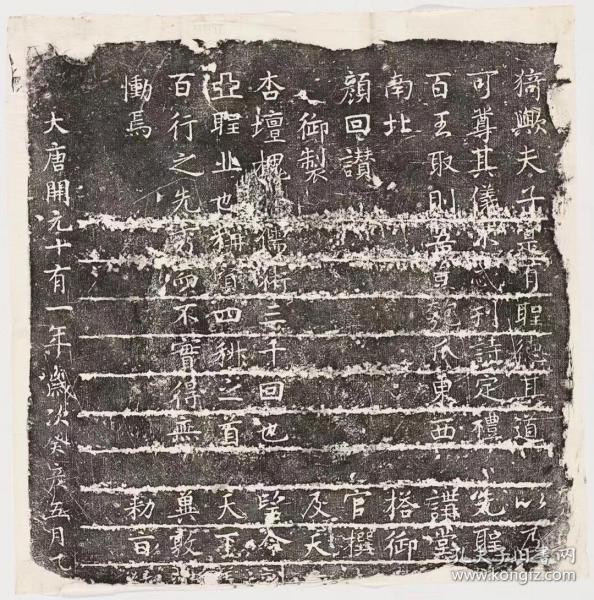 猗歟夫子是有聖德其道 以乃
可尊其儀不忒刊詩定禮 先聖
百王取則吾豈匏瓜東西 講堂
南北 搭御
顏回讚 官撰
御製 及天
杏壇槐 儒術三千回也 望令
亞聖丘也稱賢四科之首 天下
百行之先秀而不實得無 冀敦
慟焉 勑旨
大唐開元十有一年歲次癸亥五月乙
孔夫子旧书网
www.kongfz.com